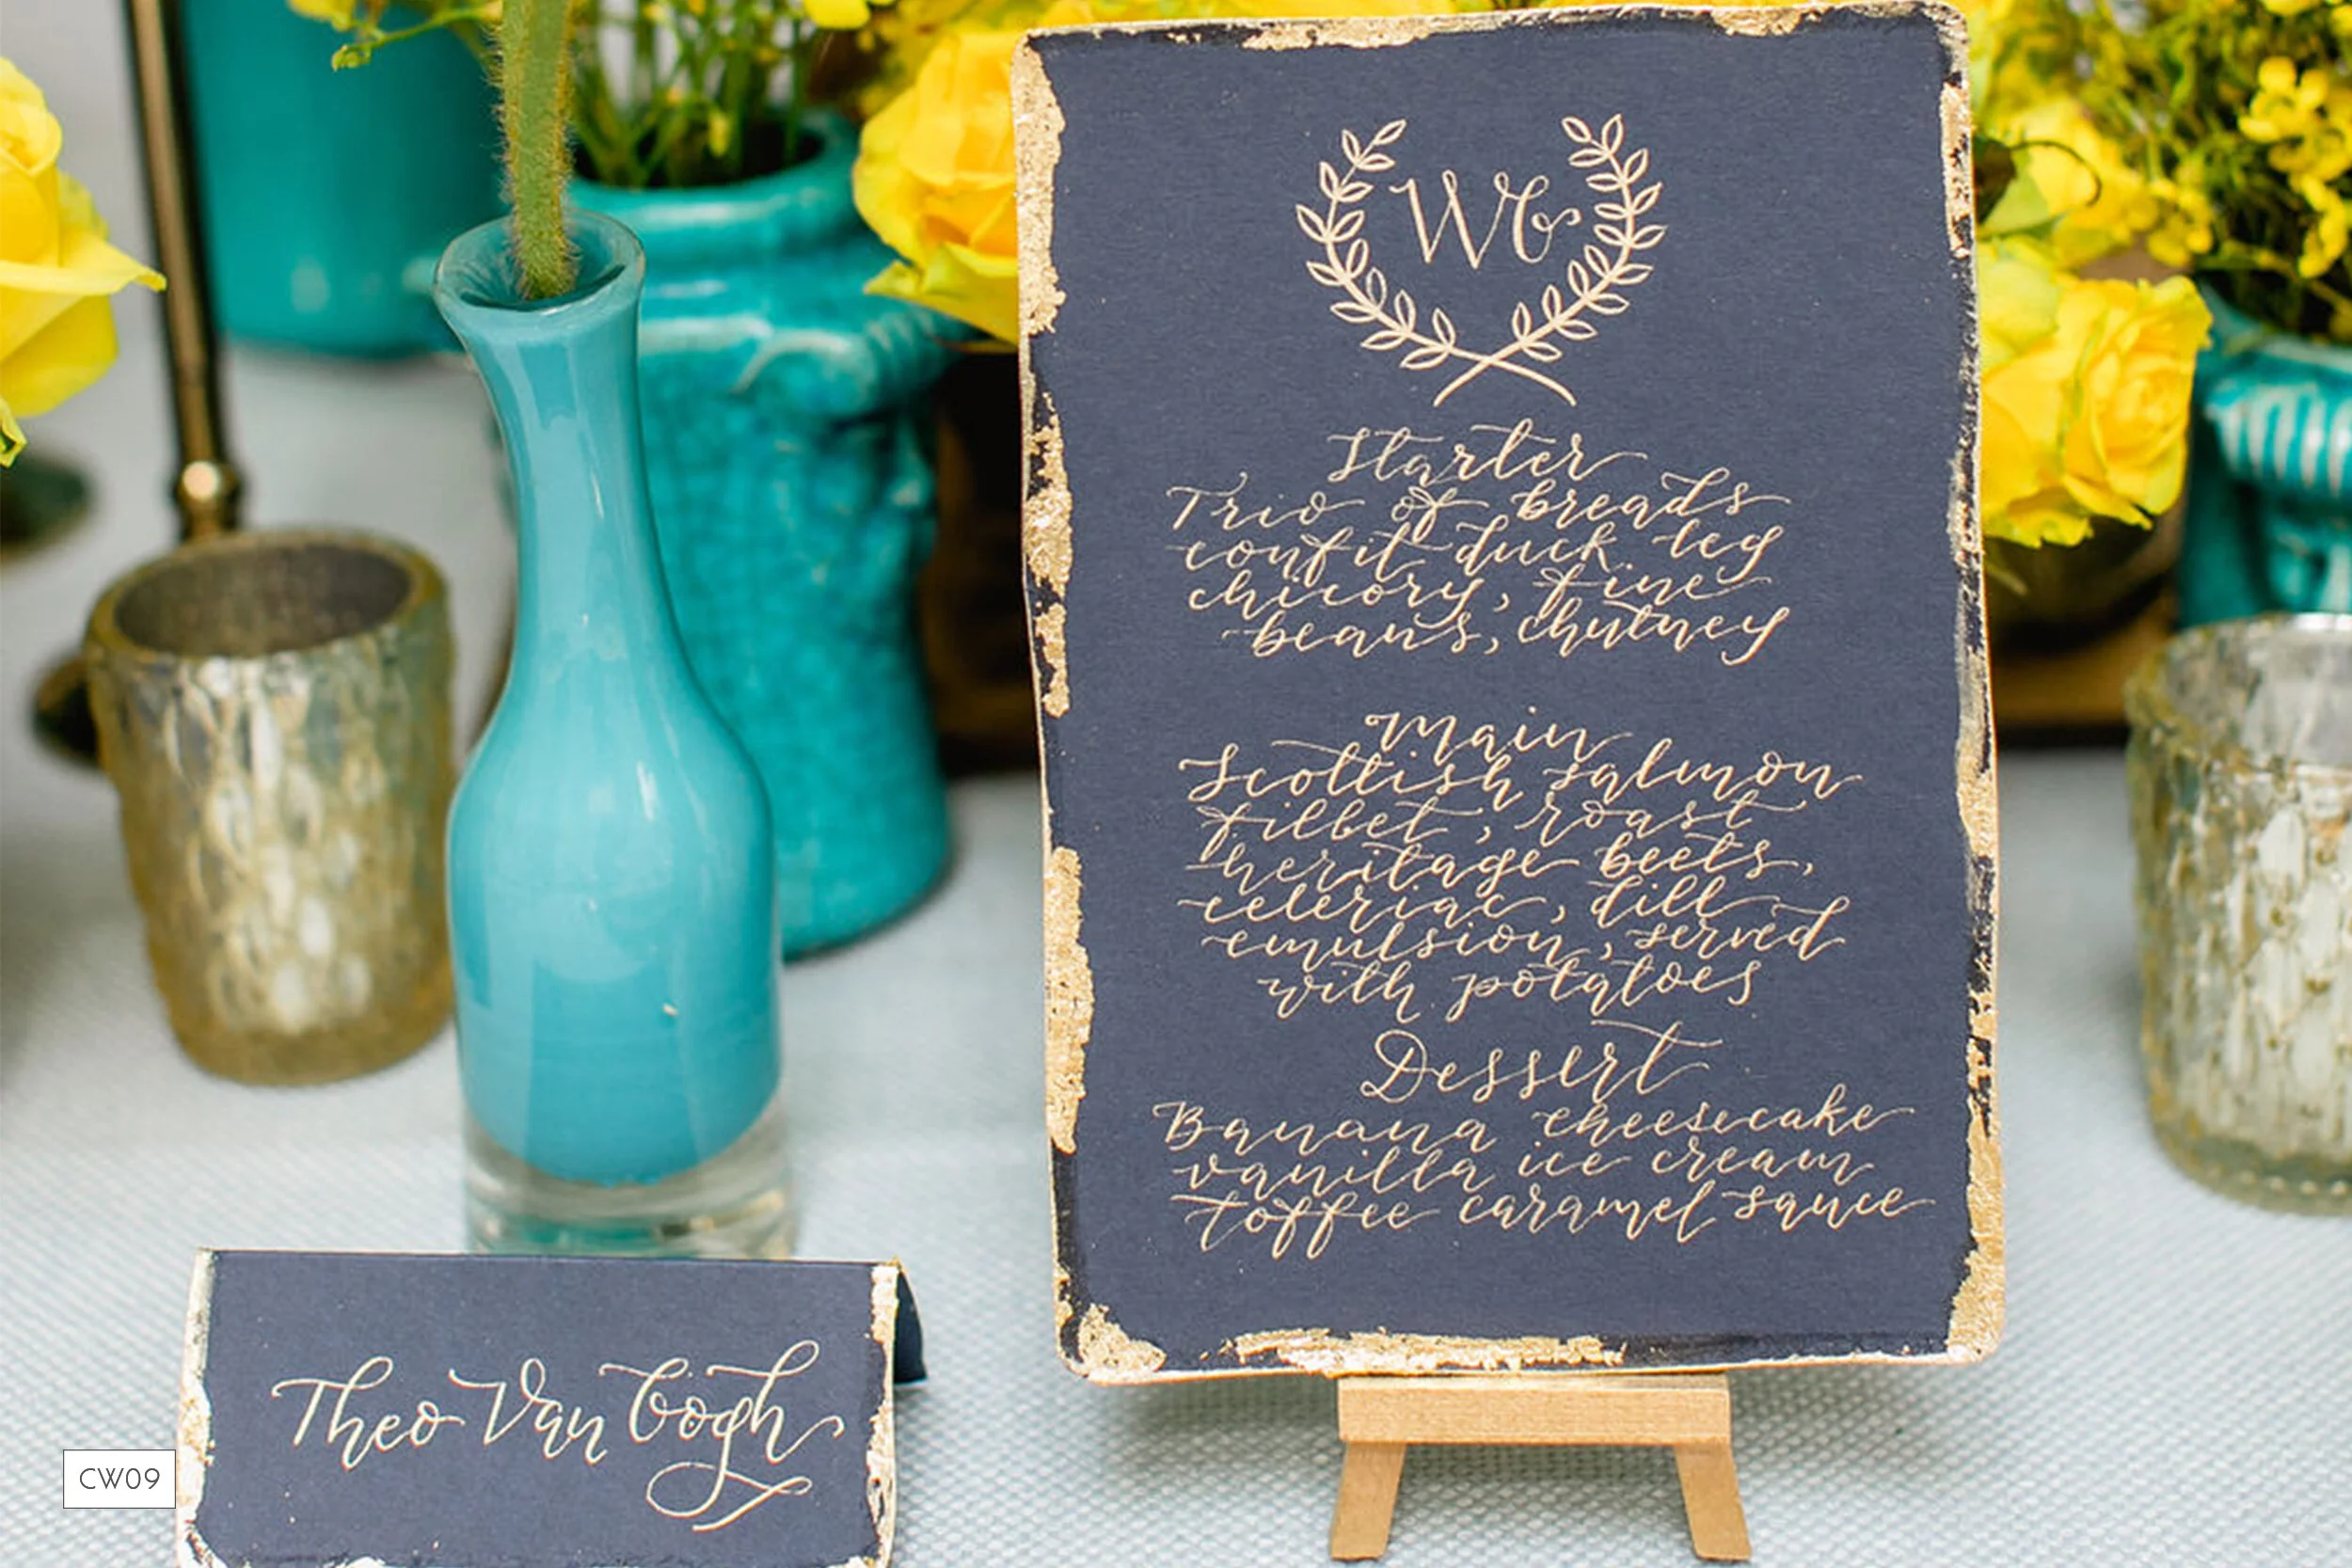 WG
Starter
Trio of breads
confit duck leg
chicory, fine
beans, chutney
Main
Scottish salmon
fillet, roast
heritage beets,
celeriac, dill
emulsion, served
with potatoes
Dessert
Banana cheesecake
vanilla ice cream
toffee caramel sauce
Theo Van Gogh
CW09